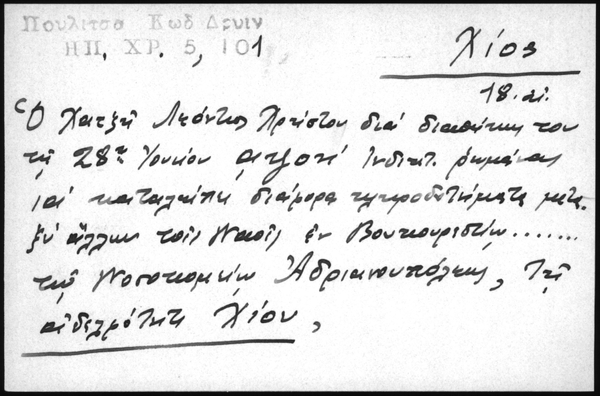 Πουλίτσα Κωδ Δενιν
ΗΠ. ΧΡ. 5, 101
Χίος
18. αι.
Ὁ Χατζῆ Λεόντιος Χρήστου διά διαθήκης του
τῆς 28ης Ἰουνίου Ἰνδικτ.
καταλείπει διάφορα κληροδοτήματα μετα-
ξύ ἄλλων τοῖς Ναοῖς ἐν Βουκουρεστίῳ.......
τῷ Νοσοκομείῳ Ἀδριανουπόλεως, Τῇ
ἀδελφότητι Χίου,